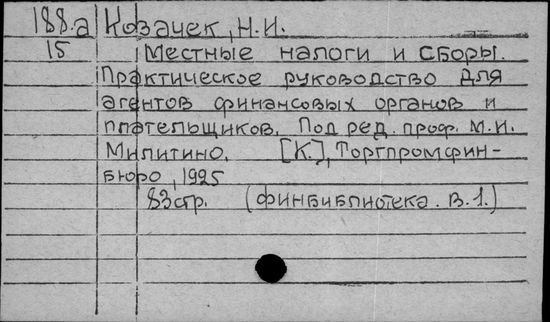 188.а Козачек, Н.И.
15 Местные налоги и сборы.
Практическое руководство для
агентов финансовых органов и
плательщиков. Под ред. проф. М.И.
Милитино. [К.], Торгпромфин-
бюро, 1925
83 стр. (Финбиблиотека. В.1.)